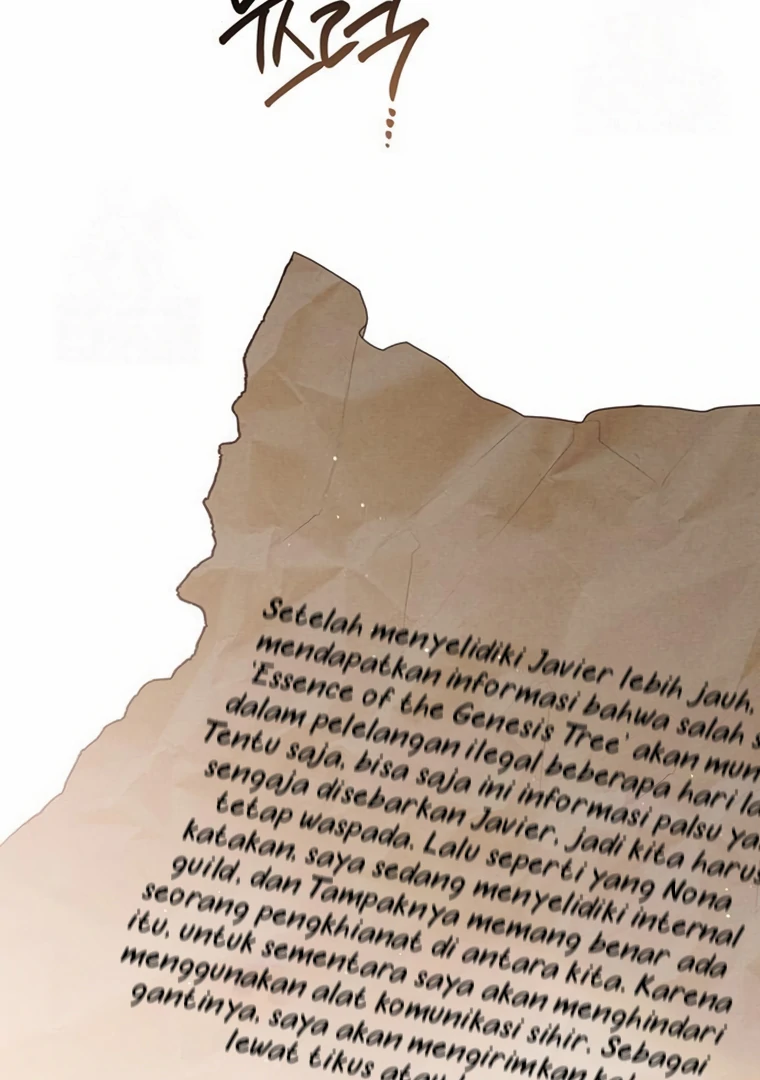 부스르륵
Setelah menyelidiki Javier lebih jauh,
mendapatkan informasi bahwa salah
'Essence of the Genesis Tree' akan
dalam pelelangan ilegal beberapa hari
Tentu saja, bisa saja ini informasi palsu
sengaja disebarkan Javier, jadi kita harus
tetap waspada. Lalu seperti yang Nona
katakan, saya sedang menyelidiki internal
guild, dan Tampaknya memang benar ada
seorang pengkhianat di antara kita. Karena
itu, untuk sementara saya akan menghindari
menggunakan alat komunikasi sihir. Sebagai
gantinya, saya akan mengirimkan
lewat tikus atau